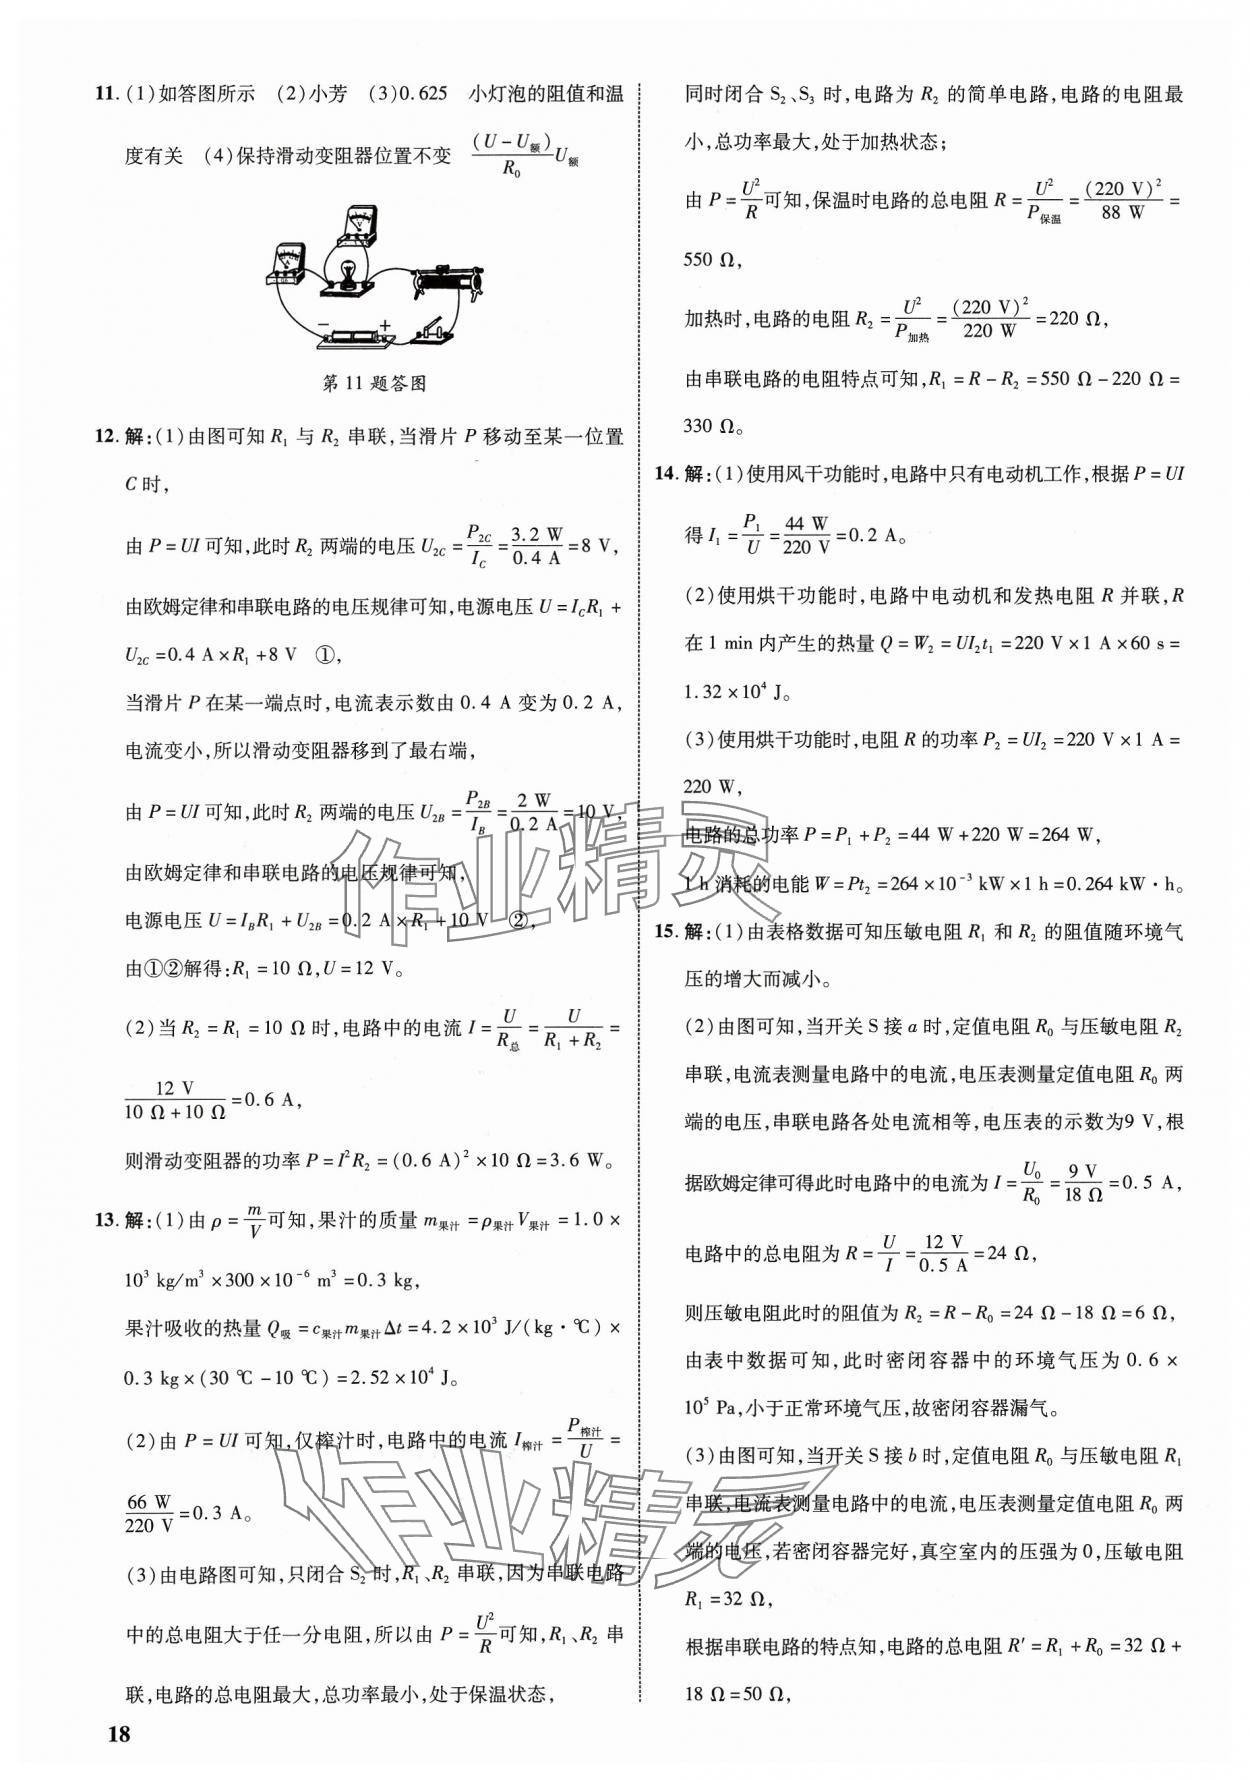 11. (1)如答图所示 (2)小芳 (3)0.625 小灯泡的阻值和温
度有关 (4)保持滑动变阻器位置不变 (U-U额)/R₀ U额
第 11 题答图
12. 解:(1)由图可知 R₁ 与 R₂ 串联,当滑片 P 移动至某一位置
C 时,
由 P=UI 可知,此时 R₂ 两端的电压 U₂C=P₂C/IC=3.2 W/0.4 A=8 V,
由欧姆定律和串联电路的电压规律可知,电源电压 U=ICR₁+
U₂C=0.4 A×R₁+8 V ①,
当滑片 P 在某一端点时,电流表示数由 0.4 A 变为 0.2 A,
电流变小,所以滑动变阻器移到了最右端,
由 P=UI 可知,此时 R₂ 两端的电压 U₂B=P₂B/IB=2 W/0.2 A=10 V,
由欧姆定律和串联电路的电压规律可知,
电源电压 U=IBR₁+U₂B=0.2 A×R₁+10 V ②,
由①②解得:R₁=10 Ω,U=12 V。
(2)当 R₂=R₁=10 Ω 时,电路中的电流 I=U/R总=U/(R₁+R₂)=
12 V/(10 Ω+10 Ω)=0.6 A,
则滑动变阻器的功率 P=I²R₂=(0.6 A)²×10 Ω=3.6 W。
13. 解:(1)由 ρ=m/V可知,果汁的质量 m果汁=ρ果汁V果汁=1.0×
10³ kg/m³×300×10⁻⁶ m³=0.3 kg,
果汁吸收的热量 Q吸=c果汁m果汁Δt=4.2×10³ J/(kg·℃)×
0.3 kg×(30 ℃-10 ℃)=2.52×10⁴ J。
(2)由 P=UI 可知,仅榨汁时,电路中的电流 I榨汁=P榨汁/U=
66 W/220 V=0.3 A。
(3)由电路图可知,只闭合 S₂ 时,R₁、R₂ 串联,因为串联电路
中的总电阻大于任一分电阻,所以由 P=U²/R可知,R₁、R₂ 串
联,电路的总电阻最大,总功率最小,处于保温状态,
18
同时闭合 S₂、S₃ 时,电路为 R₂ 的简单电路,电路的电阻最
小,总功率最大,处于加热状态;
由 P=U²/R可知,保温时电路的总电阻 R=U²/P保温=(220 V)²/88 W=
550 Ω,
加热时,电路的电阻 R₂=U²/P加热=(220 V)²/220 W=220 Ω,
由串联电路的电阻特点可知,R₁=R-R₂=550 Ω-220 Ω=
330 Ω。
14. 解:(1)使用风干功能时,电路中只有电动机工作,根据 P=UI
得 I₁=P₁/U=44 W/220 V=0.2 A。
(2)使用烘干功能时,电路中电动机和发热电阻 R 并联,R
在 1 min 内产生的热量 Q=W₂=UI₂t₁=220 V×1 A×60 s=
1.32×10⁴ J。
(3)使用烘干功能时,电阻 R 的功率 P₂=UI₂=220 V×1 A=
220 W,
电路的总功率 P=P₁+P₂=44 W+220 W=264 W,
1 h 消耗的电能 W=Pt₂=264×10⁻³ kW×1 h=0.264 kW·h。
15. 解:(1)由表格数据可知压敏电阻 R₁ 和 R₂ 的阻值随环境气
压的增大而减小。
(2)由图可知,当开关 S 接 a 时,定值电阻 R₀ 与压敏电阻 R₂
串联,电流表测量电路中的电流,电压表测量定值电阻 R₀ 两
端的电压,串联电路各处电流相等,电压表的示数为9 V,根
据欧姆定律可得此时电路中的电流为 I=U₀/R₀=9 V/18 Ω=0.5 A,
电路中的总电阻为 R=U/I=12 V/0.5 A=24 Ω,
则压敏电阻此时的阻值为 R₂=R-R₀=24 Ω-18 Ω=6 Ω,
由表中数据可知,此时密闭容器中的环境气压为 0.6×
10⁵ Pa,小于正常环境气压,故密闭容器漏气。
(3)由图可知,当开关 S 接 b 时,定值电阻 R₀ 与压敏电阻 R₁
串联,电流表测量电路中的电流,电压表测量定值电阻 R₀ 两
端的电压,若密闭容器完好,真空室内的压强为 0,压敏电阻
R₁=32 Ω,
根据串联电路的特点知,电路的总电阻 R′=R₁+R₀=32 Ω+
18 Ω=50 Ω,
作业精灵
作业精灵